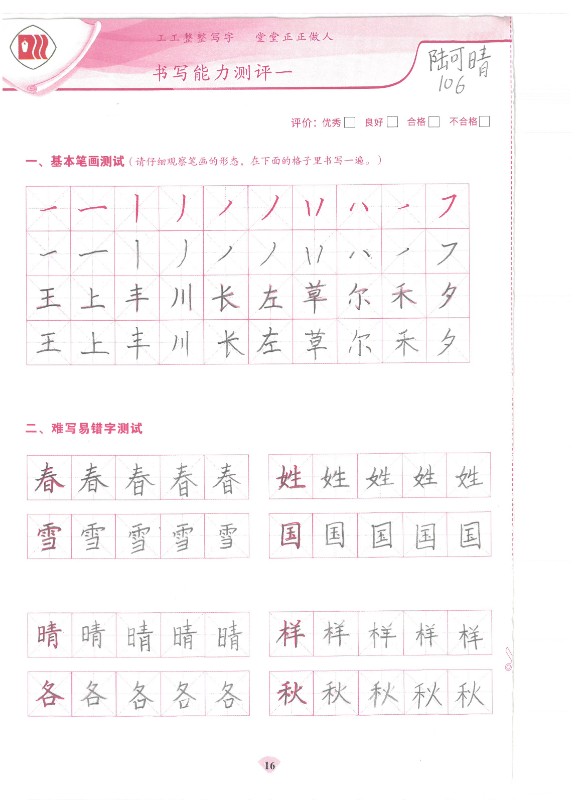 工工整整写字 堂堂正正做人
书写能力测评一
陆可晴
106
评价：优秀□ 良好□ 合格□ 不合格□
一、基本笔画测试（请仔细观察笔画的形态，在下面的格子里书写一遍。）
王上丰川长左草尔禾夕
王上丰川长左草尔禾夕
二、难写易错字测试
春春春春春 姓姓姓姓姓
雪雪雪雪雪 国国国国国
晴晴晴晴晴 样样样样样
各各各各各 秋秋秋秋秋
16